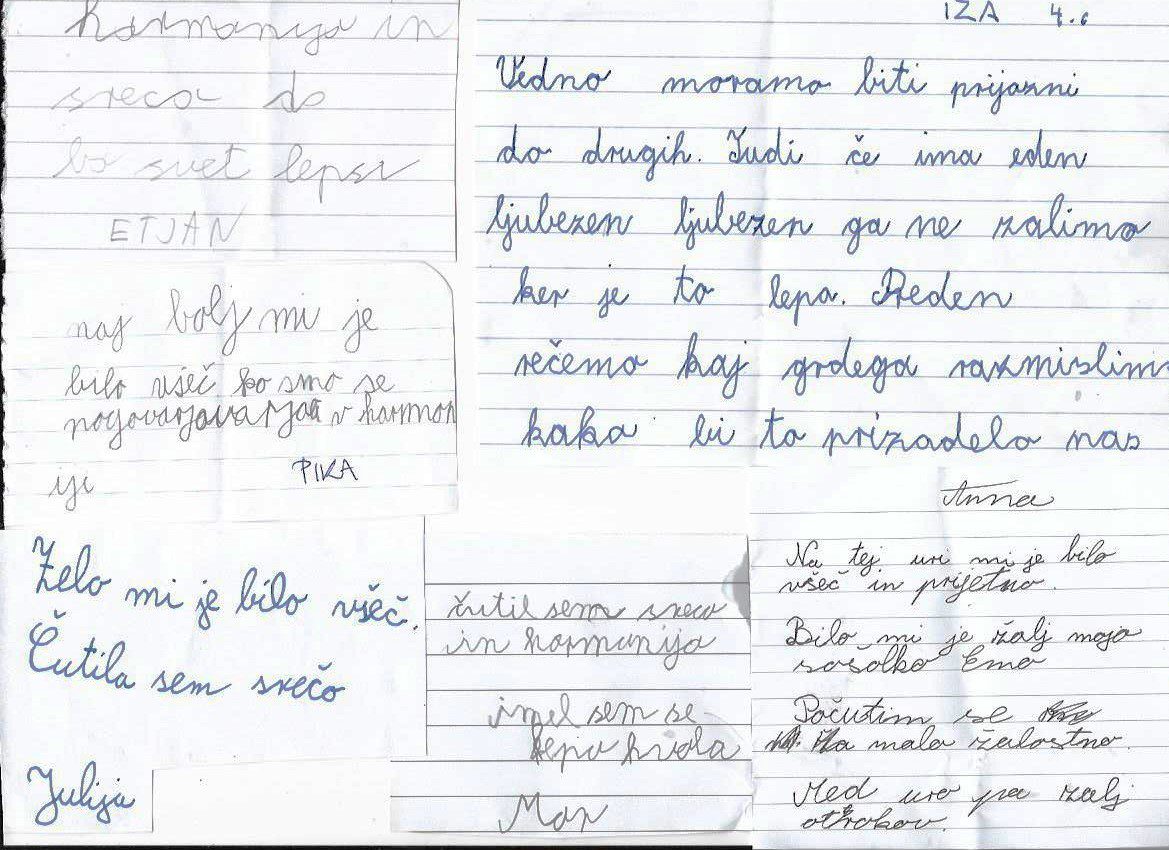 harmonija in
sreča do
bo svet lepsi
ETJAN
naj bolj mi je
bilo všeč ko smo se
pogovarjavarjali v harmon
iji
PIKA
Zelo mi je bilo všeč.
Čutila sem srečo
Julija
čutil sem sreco
in harmunija
imel sem se
lepo hvala
Max
IZA 4.c
Vedno moramo biti prijazni
do drugih. Tudi če ima eden
ljubezen ljubezen ga ne zalimo
ker je to lepa. Preden
rečemo kaj grdega razmislimo
kako bi to prizadelo nas
Anna
Na tej uri mi je bilo
všeč in prijetno.
Bilo mi je žalj mojo
sošolko Emo
Počutim se
za malo žalostno.
Med uro pa žalj
otrokov.